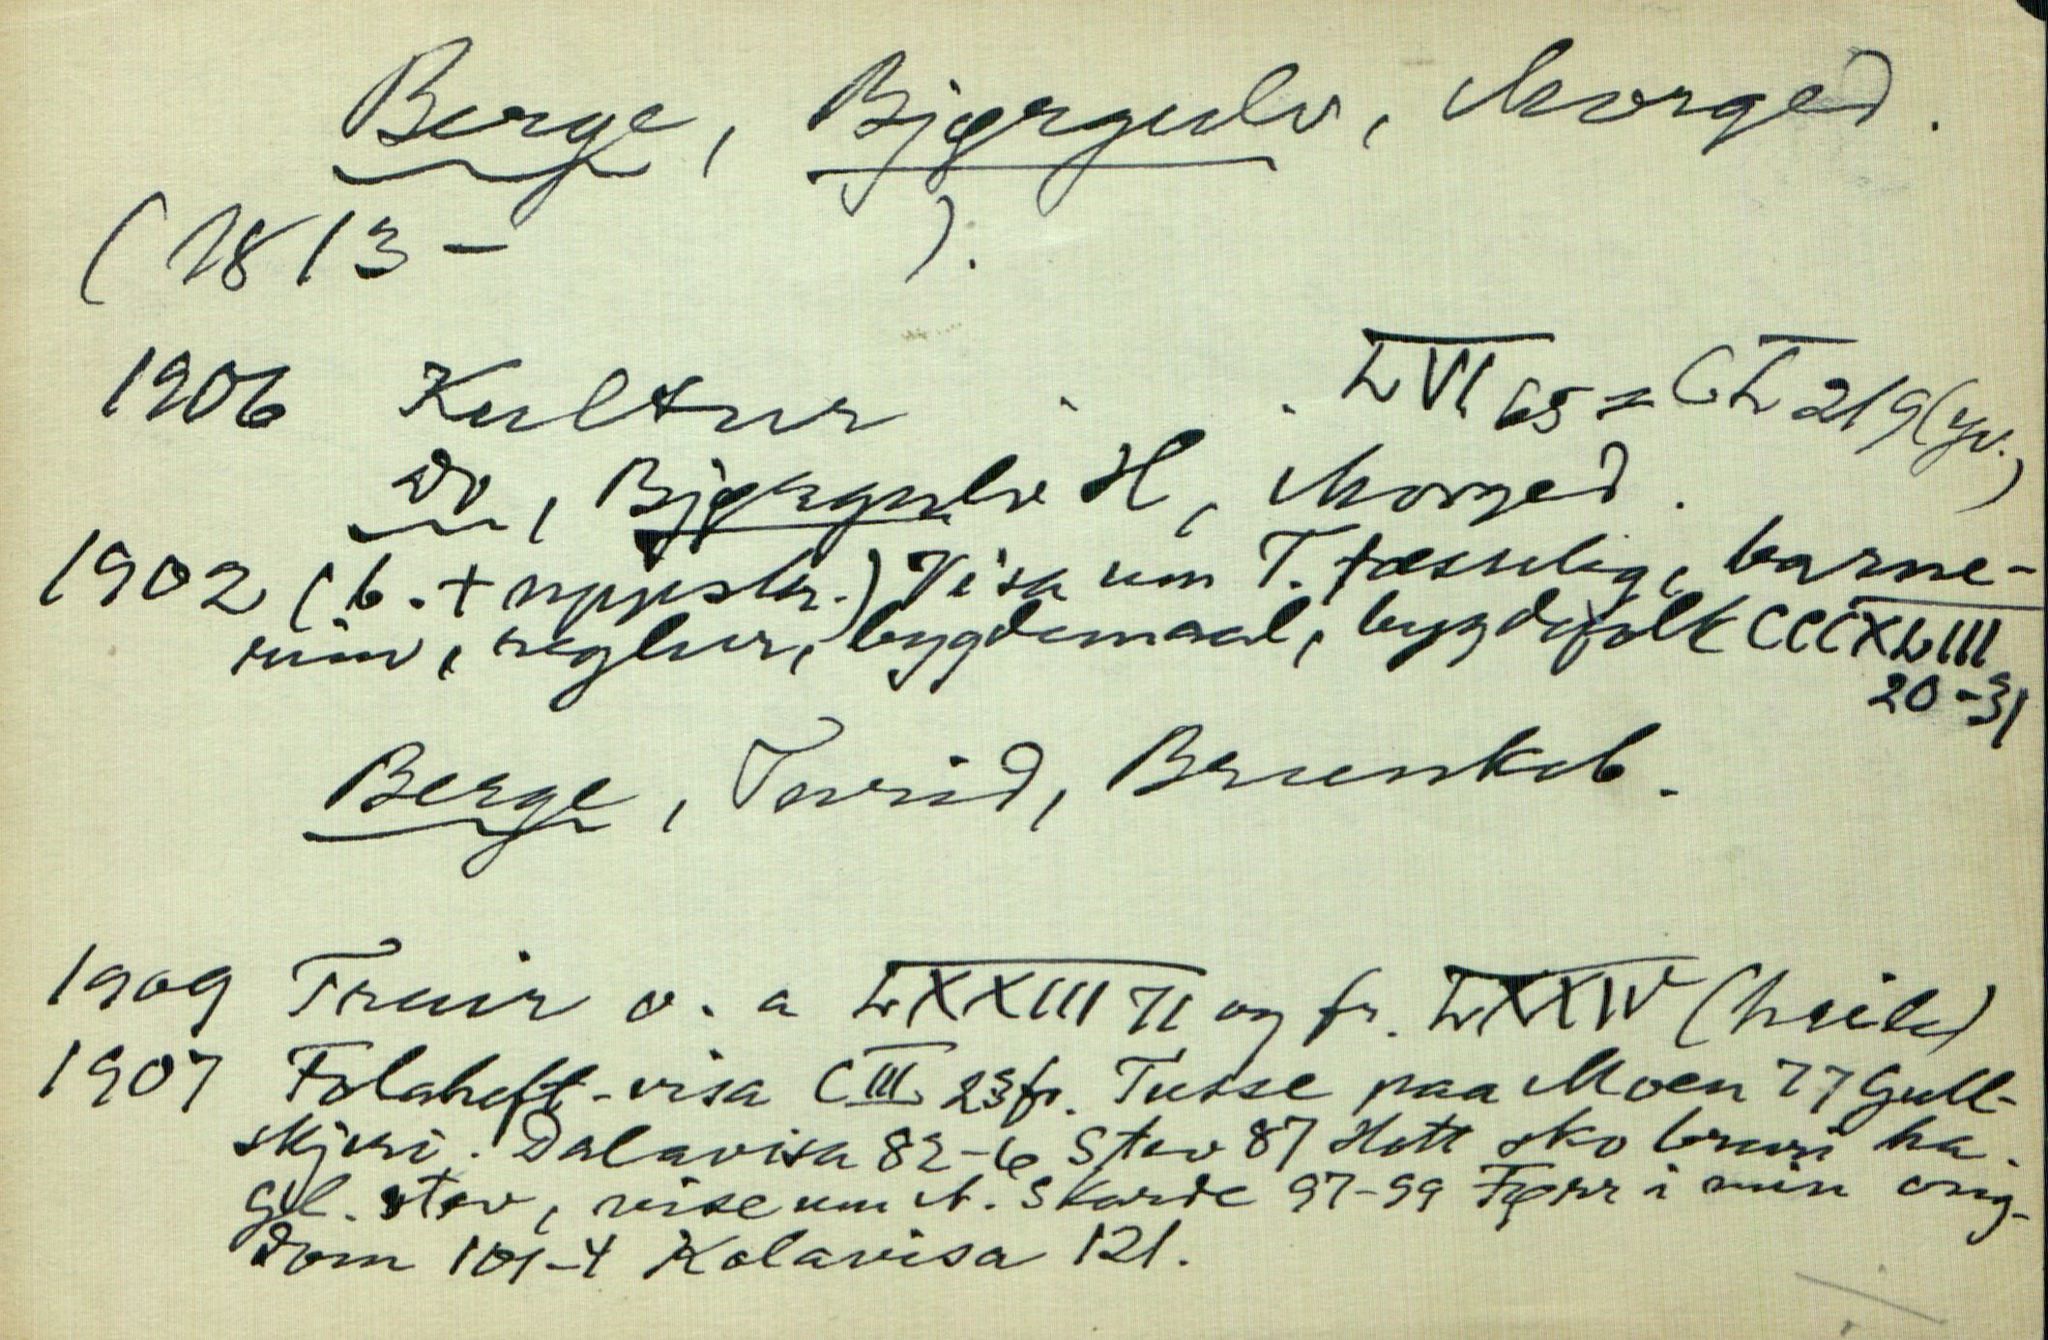 Berge, Bjørgulv, Morged.
(1813 - ).
1906 Kultur . . LVI 65 = CL 219 (yv.)
Do, Bjørgulv H, Morged.
1902 (b. + uppskr.) Visa um T. fæsulig, barne-
rim, reglur, bygdemaal, bygdefolk CCCXLIII
20-31
Berge, Turid, Brunkeb.
1909 Truir o. a LXXIII 71 og fr. LXXIV (heile)
1907 Folaheft-visa CIII 23 fr. Tusse paa Moen 77 Gull-
skjeri. Dalavisa 82-6 Stev 87 Hott sko bruri ha.
Gl. stev, vise um A. Skarde 97-99 Fyrr i min ung-
dom 101-4 Kolavisa 121.